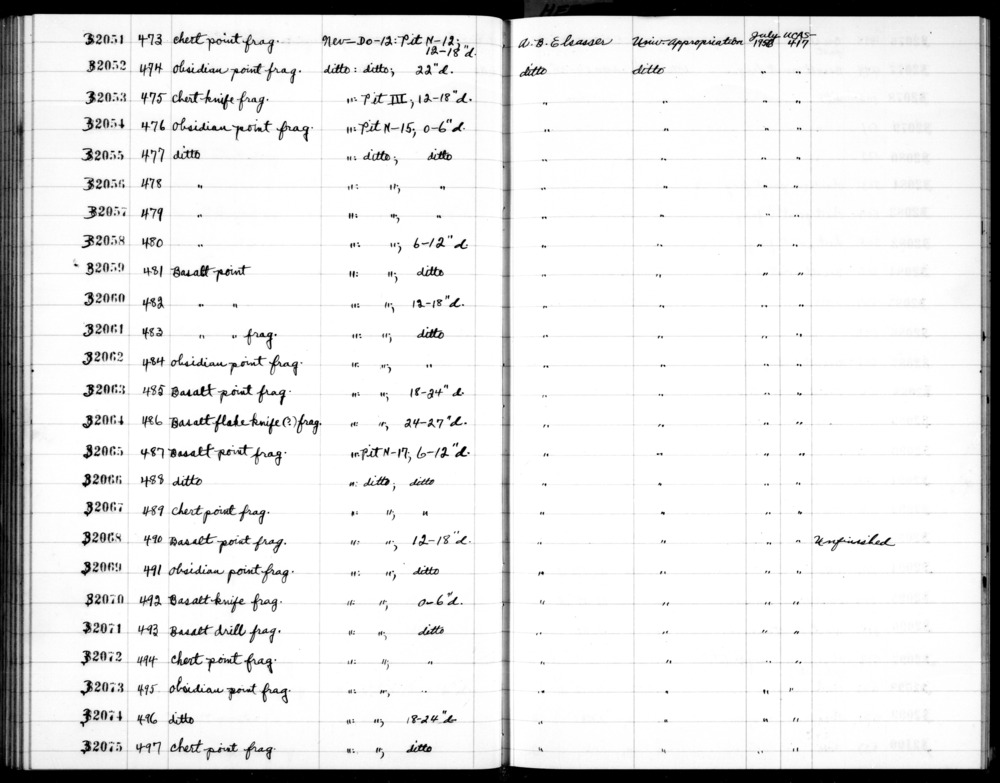 32051 473 chert point frag. Nev-Do-12: Pit N-12; 12-18"d. A. B. Elsasser Univ. Appropriation July 1958 UCAS-417
32052 474 Obsidian point frag. ditto: ditto; 22"d. ditto ditto " "
32053 475 Chert knife frag. ": Pit III, 12-18"d. " " " "
32054 476 Obsidian point frag. ": Pit N-15; 0-6"d. " " " "
32055 477 ditto ": ditto; ditto " " " "
32056 478 " ": "; " " " " "
32057 479 " ": "; " " " " "
32058 480 " ": "; 6-12"d. " " " "
32059 481 Basalt point ": "; ditto " " " "
32060 482 " " ": "; 12-18"d. " " " "
32061 483 " " frag. ": "; ditto " " " "
32062 484 Obsidian point frag. ": "; " " " " "
32063 485 Basalt point frag. ": "; 18-24"d. " " " "
32064 486 Basalt flake knife (?) frag. ": "; 24-27"d. " " " "
32065 487 Basalt point frag. ": Pit N-17; 6-12"d. " " " "
32066 488 ditto ": ditto; ditto " " " "
32067 489 Chert point frag. ": "; " " " " "
32068 490 Basalt point frag. ": "; 12-18"d. " " " " Unfinished
32069 491 Obsidian point frag. ": "; ditto " " " "
32070 492 Basalt knife frag. ": "; 0-6"d. " " " "
32071 493 Basalt drill frag. ": "; ditto " " " "
32072 494 Chert point frag. ": "; " " " " "
32073 495 Obsidian point frag. ": "; " " " " "
32074 496 ditto ": "; 18-24"d. " " " "
32075 497 Chert point frag. ": "; ditto " " " "